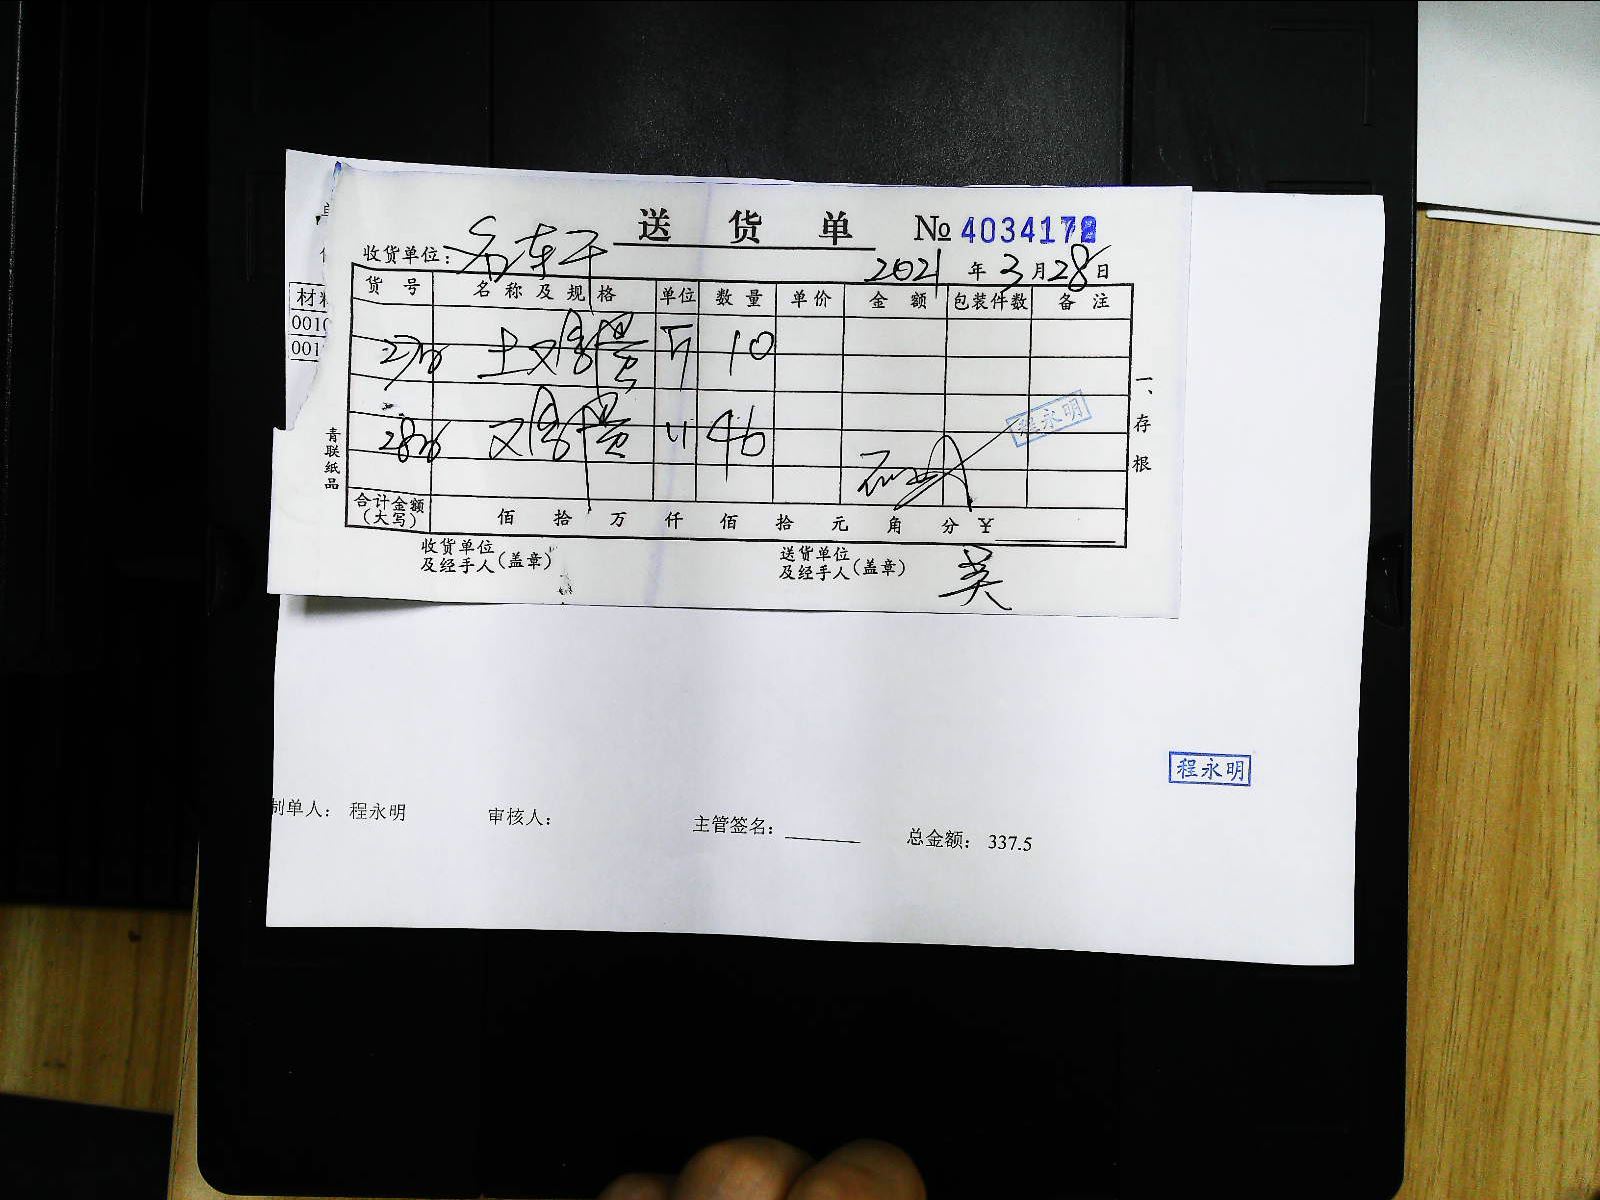 送货单 № 4034172
收货单位:
2021 年 3 月 28 日
货号 名称及规格 单位 数量 单价 金额 包装件数 备注
27号 土又鸡蛋 斤 10
28号 又鸡蛋 〃 46
程永明
合计金额(大写) 佰 拾 万 仟 佰 拾 元 角 分 ¥
收货单位及经手人(盖章)
送货单位及经手人(盖章) 英
青联纸品
一、存根
材料
0010
001
程永明
制单人: 程永明 审核人: 主管签名: 总金额: 337.5